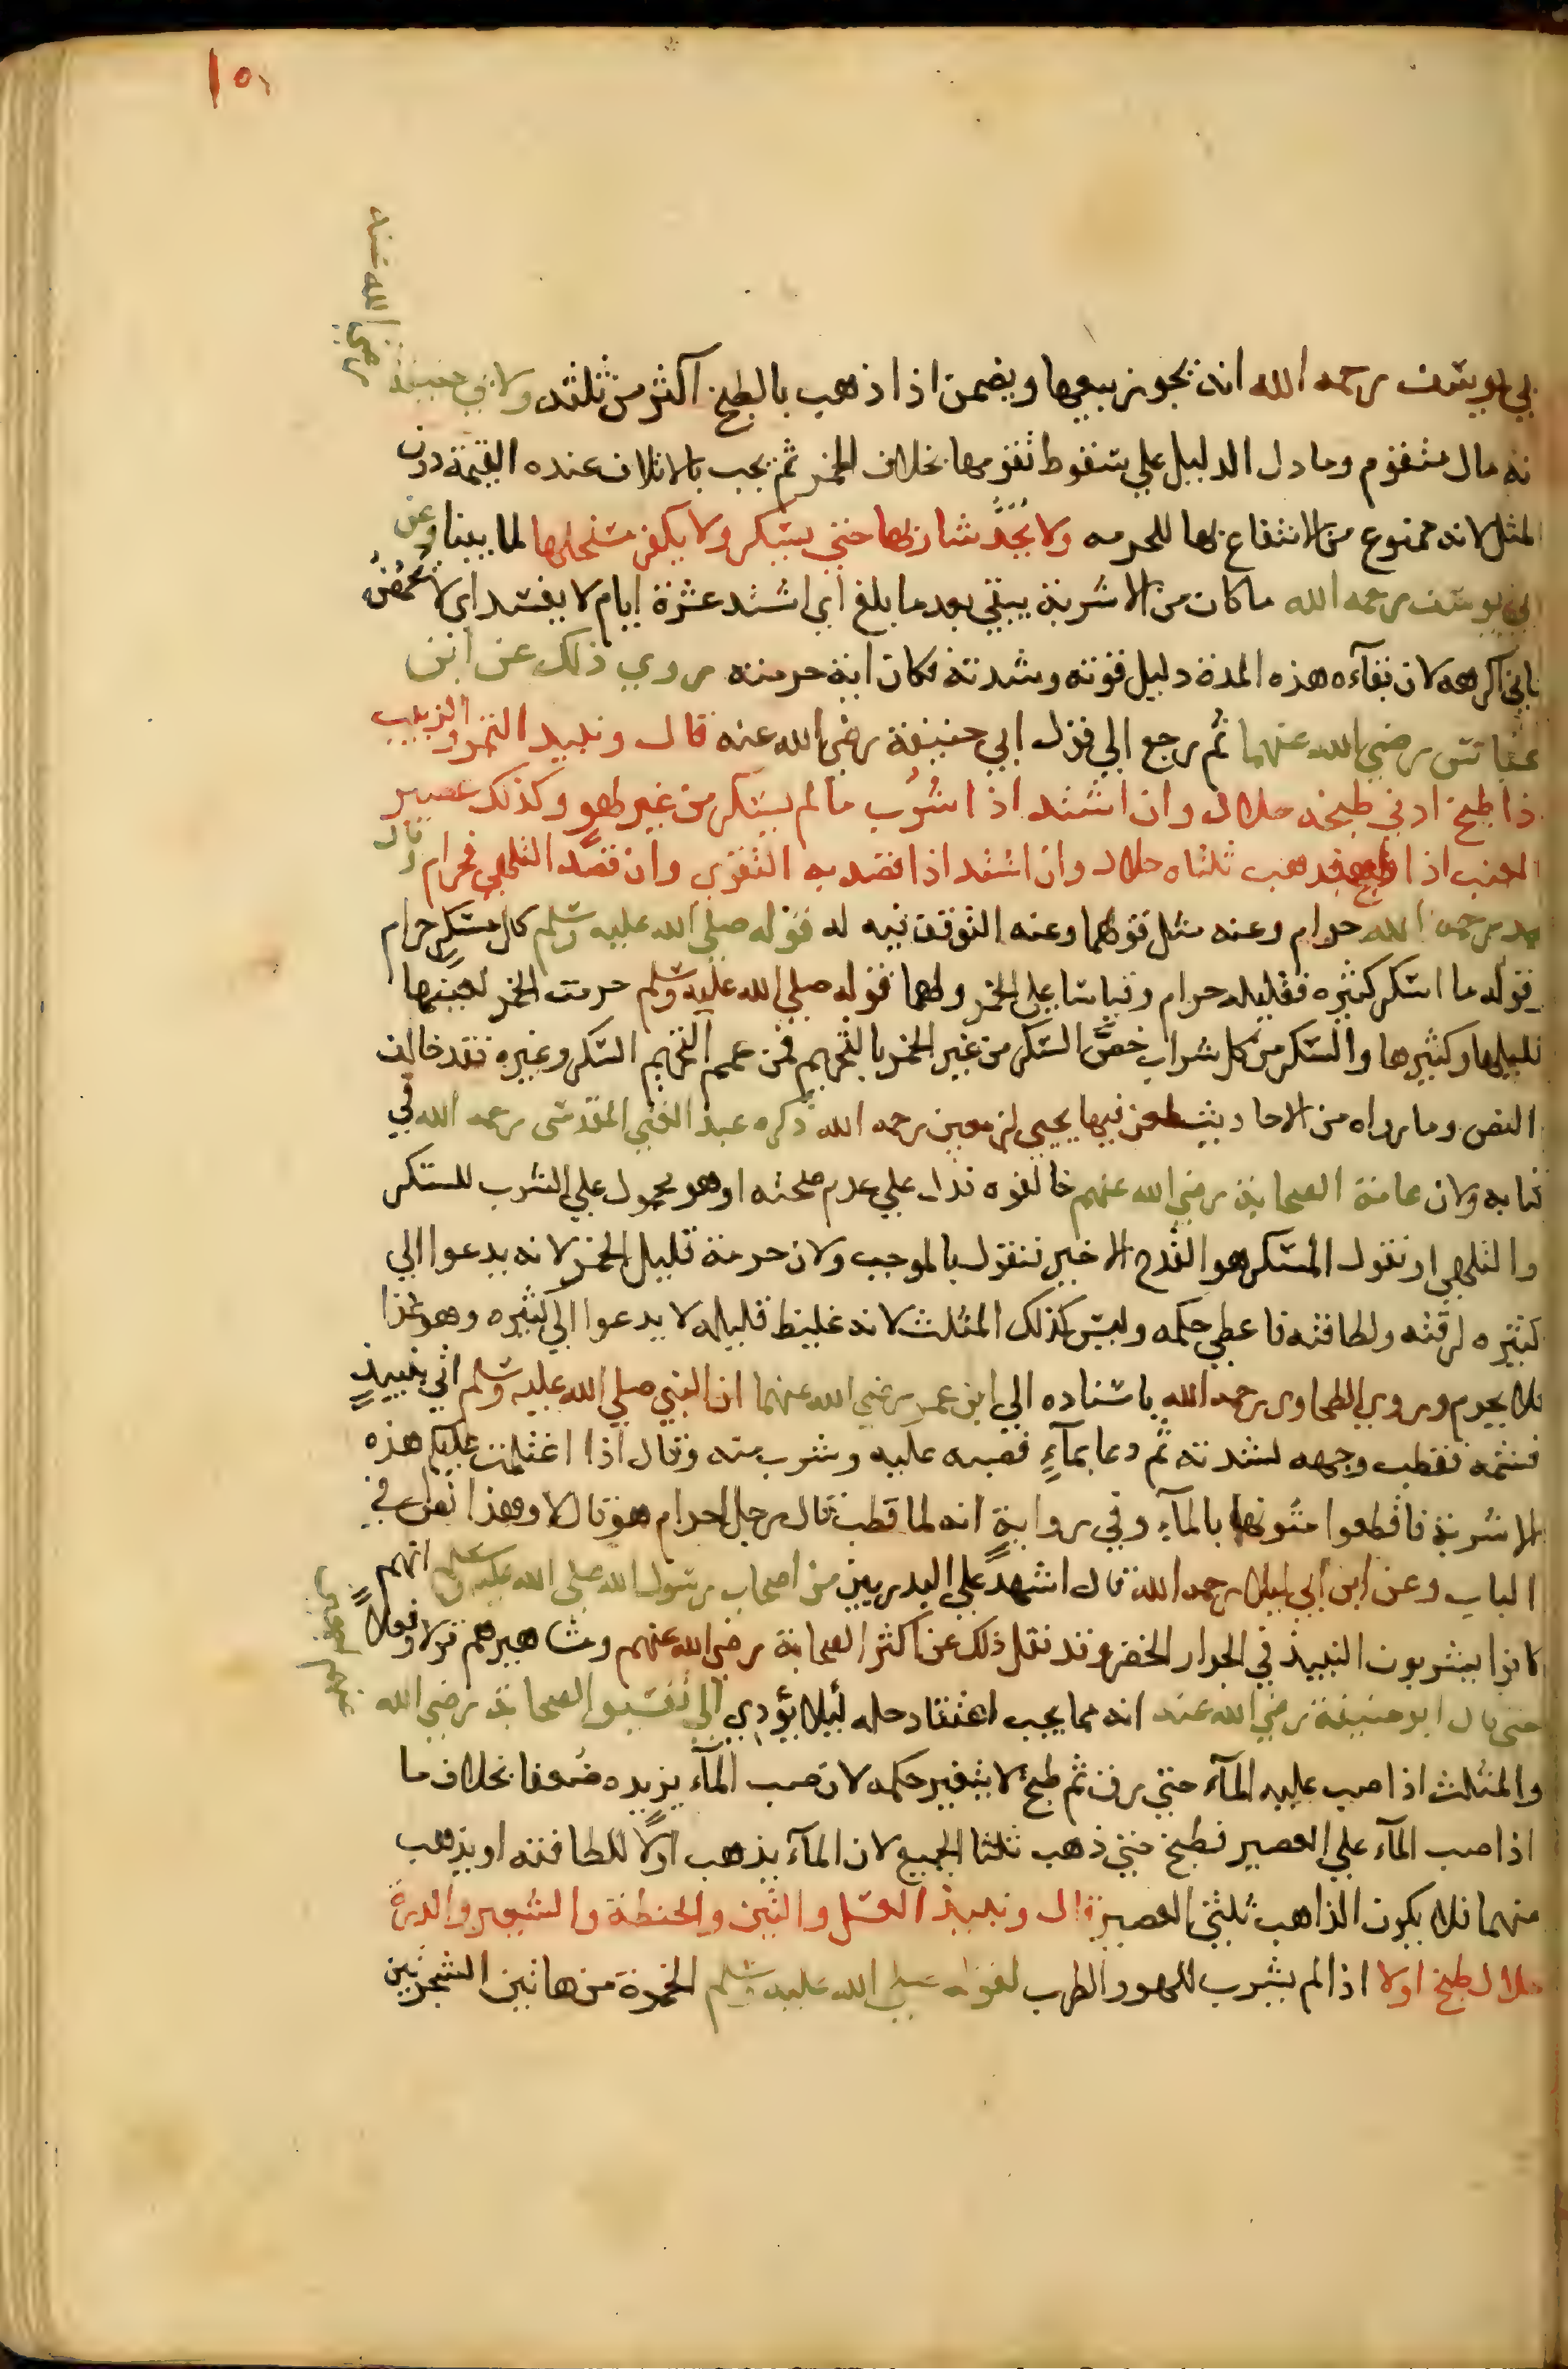 ١٥١
بي يوسف رحمه الله انه يجوز بيعها ويضمن اذا ذهب بالطبخ اكثر من ثلثه ولابي حنيفة
رضي الله عنه
نه مال متقوم وما دل الدليل علي سقوط تقومها بخلاف الخمر ثم يجب بالاتلاف عنده القيمة دون
لمثل لانه ممنوع من الانتفاع بها للحرمه ولا يُحَدُّ شاربها حتي يسكر ولا يكفر مستحلها لما بينا وعن
ابي يوسف رحمه الله ما كان من الاشربة يبقي بعد ما بلغ اي اشتد عشرة ايام لا يفسد اي لا يحمض
فاني اكرهه لان بقآءه هذه المدة دليل قوته وشدته فكان اية حرمته روي ذلك عن ابن
عباس رضي الله عنهما ثم رجع الي قول ابي حنيفة رضي الله عنه قال ونبيد التمر والزبيب
ذا طبخ ادني طبخه حلال وان اشتد اذا شُرب ما لم يسكر من غير لهو وكذلك عصير
العنب اذا طبخ فذهب ثلثاه حلال وان اشتد اذا قصد به التقوي وان قصد التلهي فحرام وقال
مد رحمه الله حرام وعنه مثل قولهما وعنه التوقف فيه له قوله صلي الله عليه وسلم كل مسكر حرام
وقوله ما اسكر كثيره فقليله حرام وقياسا علي الخمر ولهما قوله صلي الله عليه وسلم حرمت الخمر لعينها
قليلها وكثيرها والسكر من كل شراب خصَّ السكر من غير الخمر بالتحريم فمن عمم التحريم السكر وغيره فقد خالف
النص وما رواه من الاحاديث طعن فيها يحيي بن معين رحمه الله ذكره عبد الغني المقدسي رحمه الله في
كتابه ولان عامة الصحابة رضي الله عنهم خالفوه فدل علي عدم صحته او هو محمول علي الشرب للسكر
والتلهي او نقول المسكر هو القدح الاخير فنقول بالموجب ولان حرمة قليل الخمر لانه يدعوا الي
كثيره لرقته ولطافته فاعطي حكمه وليس كذلك المثلث لانه غليظ قليله لا يدعوا الي كثيره وهو غذا
فلا يحرم وروي الطحاوي رحمه الله باسناده الي ابن عمر رضي الله عنهما ان النبي صلي الله عليه وسلم اتي بنبيذٍ
فشمه فقطب وجهه لشدته ثم دعا بمآءٍ فصبه عليه وشرب منه وقال اذا اغتلمت عليكم هذه
الاشربة فاقطعوا متونها بالمآء وفي رواية انه لما قطب قال رجل احرام هو قال لا وهذا نص في
الباب وعن ابن ابي ليلي رحمه الله قال اشهد علي البدريين من اصحاب رسول الله صلي الله عليه وسلم انهم
كانوا يشربون النبيذ في الجرار الخضر وقد نقل ذلك عن اكثر الصحابة رضي الله عنهم ومشاهيرهم قولا وفعلاً
حتي قال ابو حنيفة رضي الله عنه انه مما يجب اعتقاد حله لئلا يؤدي الي تفسيق الصحابة رضي الله
والمثلث اذا صب عليه المآء حتي رق ثم طبخ لا يتغير حكمه لان صب المآء يزيده ضعفا بخلاف ما
اذا صب المآء علي العصير فطبخ حتي ذهب ثلثا الجميع لان المآء يذهب اولًا للطافته او يذهب
منهما فلا يكون الذاهب ثلثي العصير قال ونبيذ العسل والتين والحنطة والشعير والذرة
حلال طبخ اولا اذا لم يشرب للهو والطرب لقوله صلي الله عليه وسلم الخمرة من هاتين الشجرتين